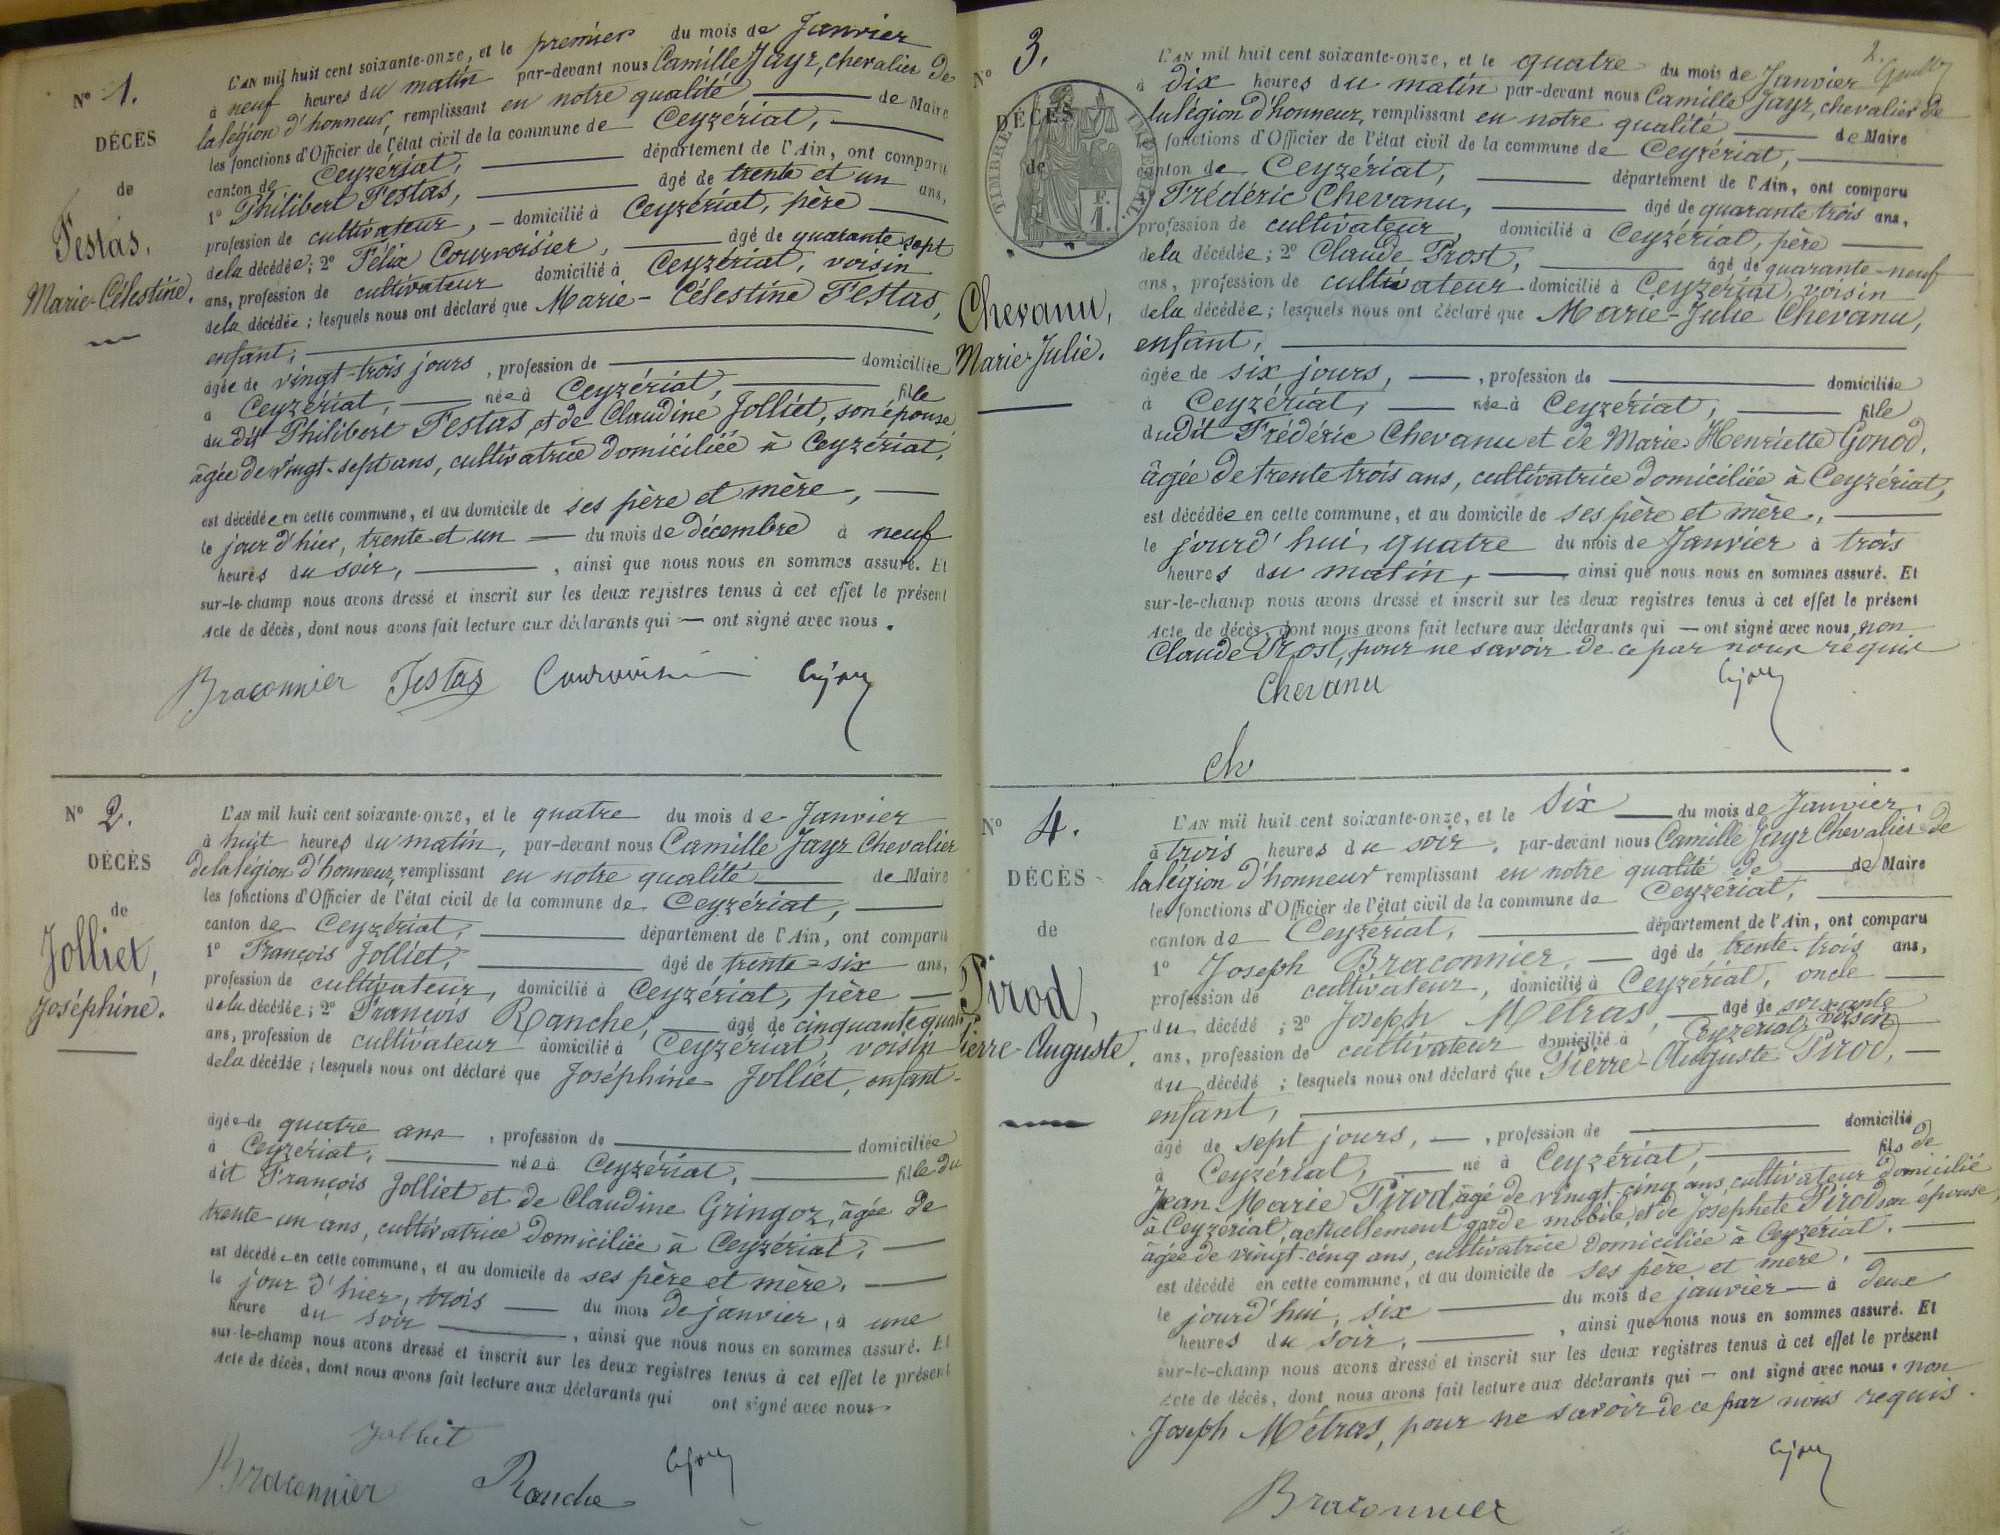 N° 1.
DÉCÈS
de
Festas,
Marie-Célestine.
L'AN mil huit cent soixante-onze, et le premier du mois de Janvier
à neuf heures du matin par-devant nous Camille Jayr, chevalier de
la légion d'honneur, remplissant en notre qualité de Maire
les fonctions d'Officier de l'état civil de la commune de Ceyzériat,
canton de Ceyzériat, département de l'Ain, ont comparu
1° Philibert Festas, âgé de trente et un ans,
profession de cultivateur, domicilié à Ceyzériat, père
de la décédée; 2° Félix Courvoisier, âgé de quarante sept
ans, profession de cultivateur domicilié à Ceyzériat, voisin
de la décédée; lesquels nous ont déclaré que Marie-Célestine Festas,
enfant,
âgée de vingt-trois jours, profession de domiciliée
à Ceyzériat, née à Ceyzériat, fille
du dit Philibert Festas et de Claudine Jolliet, son épouse
âgée de vingt-sept ans, cultivatrice domiciliée à Ceyzériat,
est décédée en cette commune, et au domicile de ses père et mère,
le jour d'hier, trente et un du mois de décembre à neuf
heures du soir, , ainsi que nous nous en sommes assuré. Et
sur-le-champ nous avons dressé et inscrit sur les deux registres tenus à cet effet le présent
Acte de décès, dont nous avons fait lecture aux déclarants qui ont signé avec nous.
Braconnier Festas Courvoisier C. Jayr
N° 2.
DÉCÈS
de
Jolliet,
Joséphine.
L'AN mil huit cent soixante-onze, et le quatre du mois de Janvier
à huit heures du matin, par-devant nous Camille Jayr Chevalier
de la légion d'honneur, remplissant en notre qualité de Maire
les fonctions d'Officier de l'état civil de la commune de Ceyzériat,
canton de Ceyzériat, département de l'Ain, ont comparu
1° François Jolliet, âgé de trente-six ans,
profession de cultivateur, domicilié à Ceyzériat, père
de la décédée; 2° François Ranche, âgé de cinquante quatre
ans, profession de cultivateur domicilié à Ceyzériat, voisin
de la décédée; lesquels nous ont déclaré que Joséphine Jolliet, enfant
âgée de quatre ans, profession de domiciliée
à Ceyzériat, née à Ceyzériat, fille du
dit François Jolliet et de Claudine Gringoz, âgée de
trente un ans, cultivatrice domiciliée à Ceyzériat,
est décédée en cette commune, et au domicile de ses père et mère,
le jour d'hier, trois du mois de janvier, à une
heure du soir , ainsi que nous nous en sommes assuré. Et
sur-le-champ nous avons dressé et inscrit sur les deux registres tenus à cet effet le présent
Acte de décès, dont nous avons fait lecture aux déclarants qui ont signé avec nous
Jolliet
Braconnier Ranche C. Jayr
2.
N° 3.
DÉCÈS
de
TIMBRE IMPÉRIAL
F.
1.
Chevanu,
Marie-Julie.
L'AN mil huit cent soixante-onze, et le quatre du mois de Janvier
à dix heures du matin par-devant nous Camille Jayr, chevalier de
la légion d'honneur, remplissant en notre qualité de Maire
les fonctions d'Officier de l'état civil de la commune de Ceyzériat,
canton de Ceyzériat, département de l'Ain, ont comparu
Frédéric Chevanu, âgé de quarante trois ans,
profession de cultivateur, domicilié à Ceyzériat, père
de la décédée; 2° Claude Prost, âgé de quarante-neuf
ans, profession de cultivateur domicilié à Ceyzériat, voisin
de la décédée; lesquels nous ont déclaré que Marie-Julie Chevanu,
enfant,
âgée de six jours, , profession de domiciliée
à Ceyzériat, née à Ceyzériat, fille
dudit Frédéric Chevanu et de Marie Henriette Gonod,
âgée de trente trois ans, cultivatrice domiciliée à Ceyzériat,
est décédée en cette commune, et au domicile de ses père et mère,
le jourd'hui, quatre du mois de Janvier à trois
heures du matin, ainsi que nous nous en sommes assuré. Et
sur-le-champ nous avons dressé et inscrit sur les deux registres tenus à cet effet le présent
Acte de décès, dont nous avons fait lecture aux déclarants qui ont signé avec nous, non
Claude Prost, pour ne savoir de ce par nous requis
Chevanu C. Jayr
Ch
N° 4.
DÉCÈS
de
Pirod,
Pierre-Auguste.
L'AN mil huit cent soixante-onze, et le six du mois de Janvier,
à trois heures du soir, par-devant nous Camille Jayr Chevalier de
la légion d'honneur remplissant en notre qualité de de Maire
les fonctions d'Officier de l'état civil de la commune de Ceyzériat,
canton de Ceyzériat, département de l'Ain, ont comparu
1° Joseph Braconnier, âgé de trente-trois ans,
profession de cultivateur, domicilié à Ceyzériat, oncle
du décédé; 2° Joseph Métras, âgé de soixante
ans, profession de cultivateur domicilié à Ceyzériat, voisin
du décédé; lesquels nous ont déclaré que Pierre-Auguste Pirod,
enfant,
âgé de sept jours, , profession de domicilié
à Ceyzériat, né à Ceyzériat, fils de
Jean Marie Pirod, âgé de vingt cinq ans, cultivateur domicilié
à Ceyzériat, actuellement garde mobile, et de Josephete Pirod son épouse,
âgée de vingt-cinq ans, cultivatrice domiciliée à Ceyzériat.
est décédé en cette commune, et au domicile de ses père et mère,
le jourd'hui, six du mois de janvier à deux
heures du soir, , ainsi que nous nous en sommes assuré. Et
sur-le-champ nous avons dressé et inscrit sur les deux registres tenus à cet effet le présent
Acte de décès, dont nous avons fait lecture aux déclarants qui ont signé avec nous, non
Joseph Métras, pour ne savoir de ce par nous requis.
C. Jayr
Braconnier